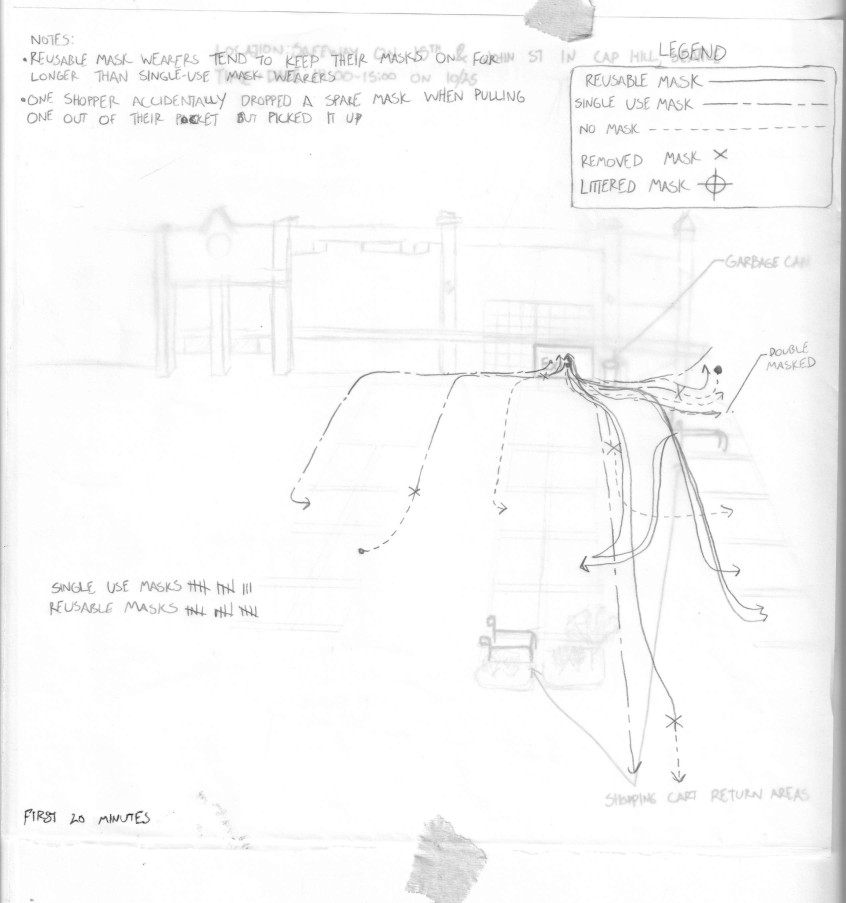 NOTES:
•REUSABLE MASK WEARERS TEND TO KEEP THEIR MASKS ON FOR
LONGER THAN SINGLE-USE MASK WEARERS
•ONE SHOPPER ACCIDENTALLY DROPPED A SPARE MASK WHEN PULLING
ONE OUT OF THEIR POCKET BUT PICKED IT UP
LOCATION: SAFEWAY ON 15TH & JOHN ST IN CAP HILL,
15:00 ON 10/25
LEGEND
REUSABLE MASK
SINGLE USE MASK
NO MASK
REMOVED MASK X
LITTERED MASK
GARBAGE CAN
DOUBLE
MASKED
SINGLE USE MASKS
REUSABLE MASKS
SHOPPING CART RETURN AREAS
FIRST 20 MINUTES